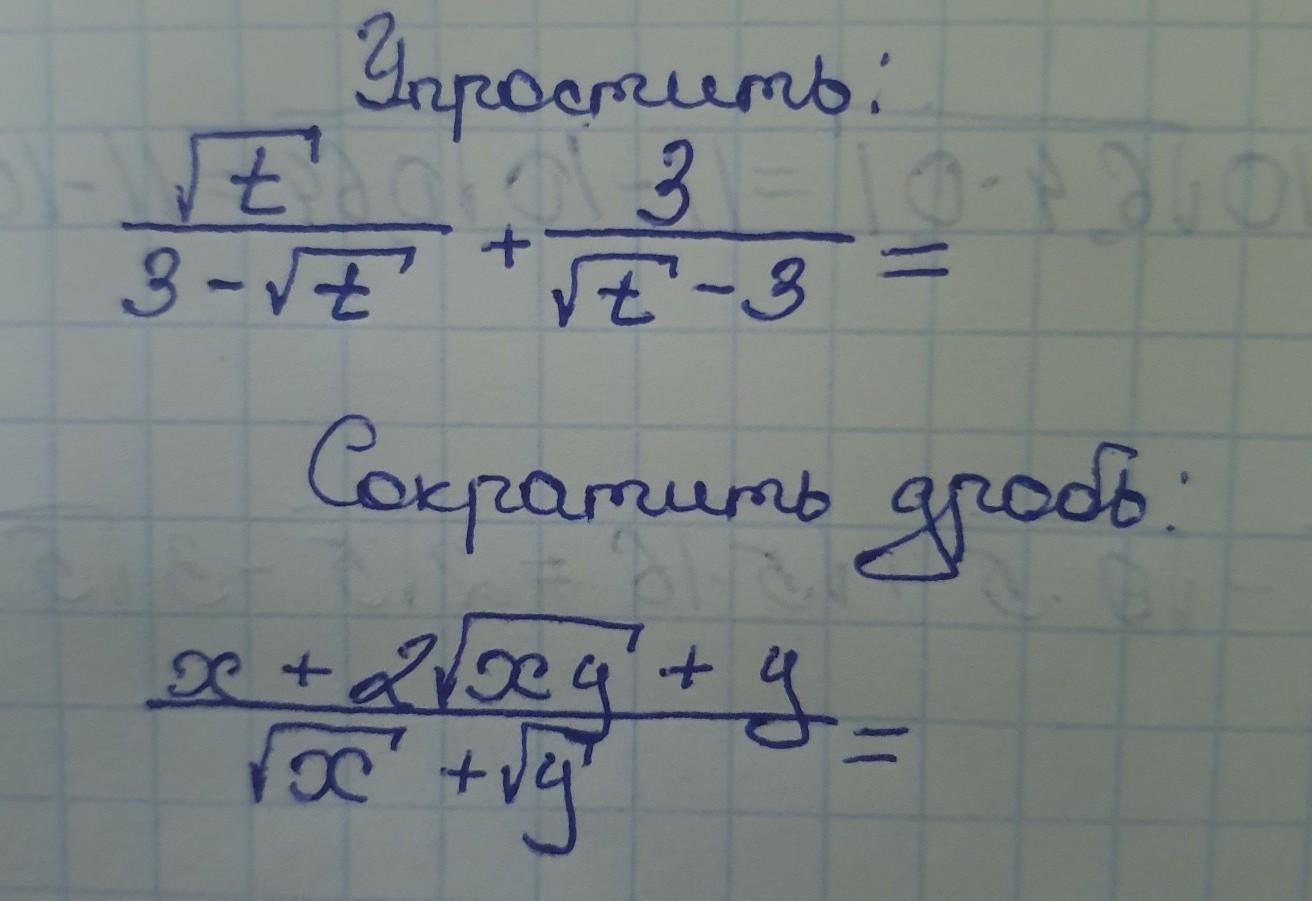 Упростить:
√t / (3 - √t) + 3 / (√t - 3) =
Сократить дробь:
(x + 2√xy + y) / (√x + √y) =